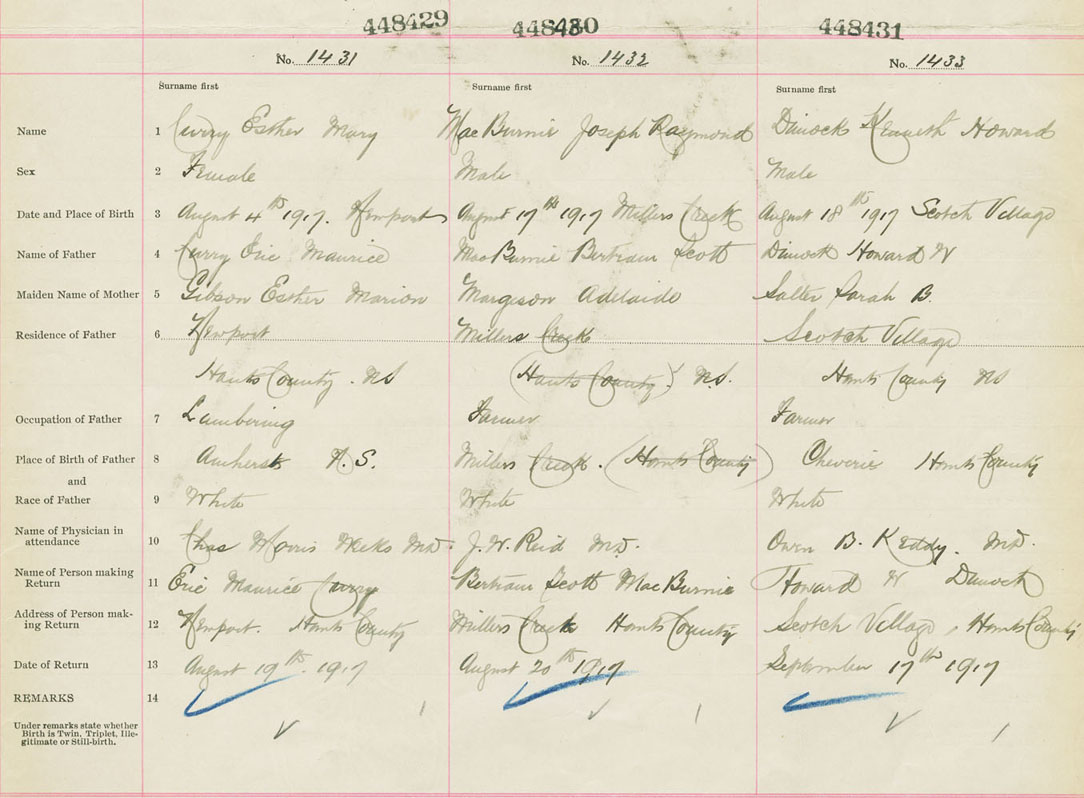 448429 448430 448431
No. 1431 No. 1432 No. 1433
Surname first Surname first Surname first
Name 1 Curry Esther Mary MacBurnie Joseph Raymond Dimock Kenneth Howard
Sex 2 Female Male Male
Date and Place of Birth 3 August 4th 1917. Newport August 17th 1917 Millers Creek August 18th 1917 Scotch Village
Name of Father 4 Curry Eric Maurice MacBurnie Bertram Scott Dimock Howard W
Maiden Name of Mother 5 Gibson Esther Marion Margison Adelaide Salter Sarah B.
Residence of Father 6 Newport Millers Creek Scotch Village
Hants County. NS (Hants County) N.S. Hants County NS
Occupation of Father 7 Lumbering Farmer Farmer
Place of Birth of Father 8 Amherst N.S. Millers Creek. (Hants County) Cheverie Hants County
and
Race of Father 9 White White White
Name of Physician in
attendance 10 Chas Morris Weeks MD. J. W. Reid MD. Owen B. Keddy. MD.
Name of Person making
Return 11 Eric Maurice Curry Bertram Scott MacBurnie Howard W Dimock
Address of Person mak-
ing Return 12 Newport. Hants County Millers Creek Hants County Scotch Village, Hants County
Date of Return 13 August 19th. 1917 August 20th 1917 September 17th 1917
REMARKS 14
Under remarks state whether
Birth is Twin, Triplet, Ille-
gitimate or Still-birth.